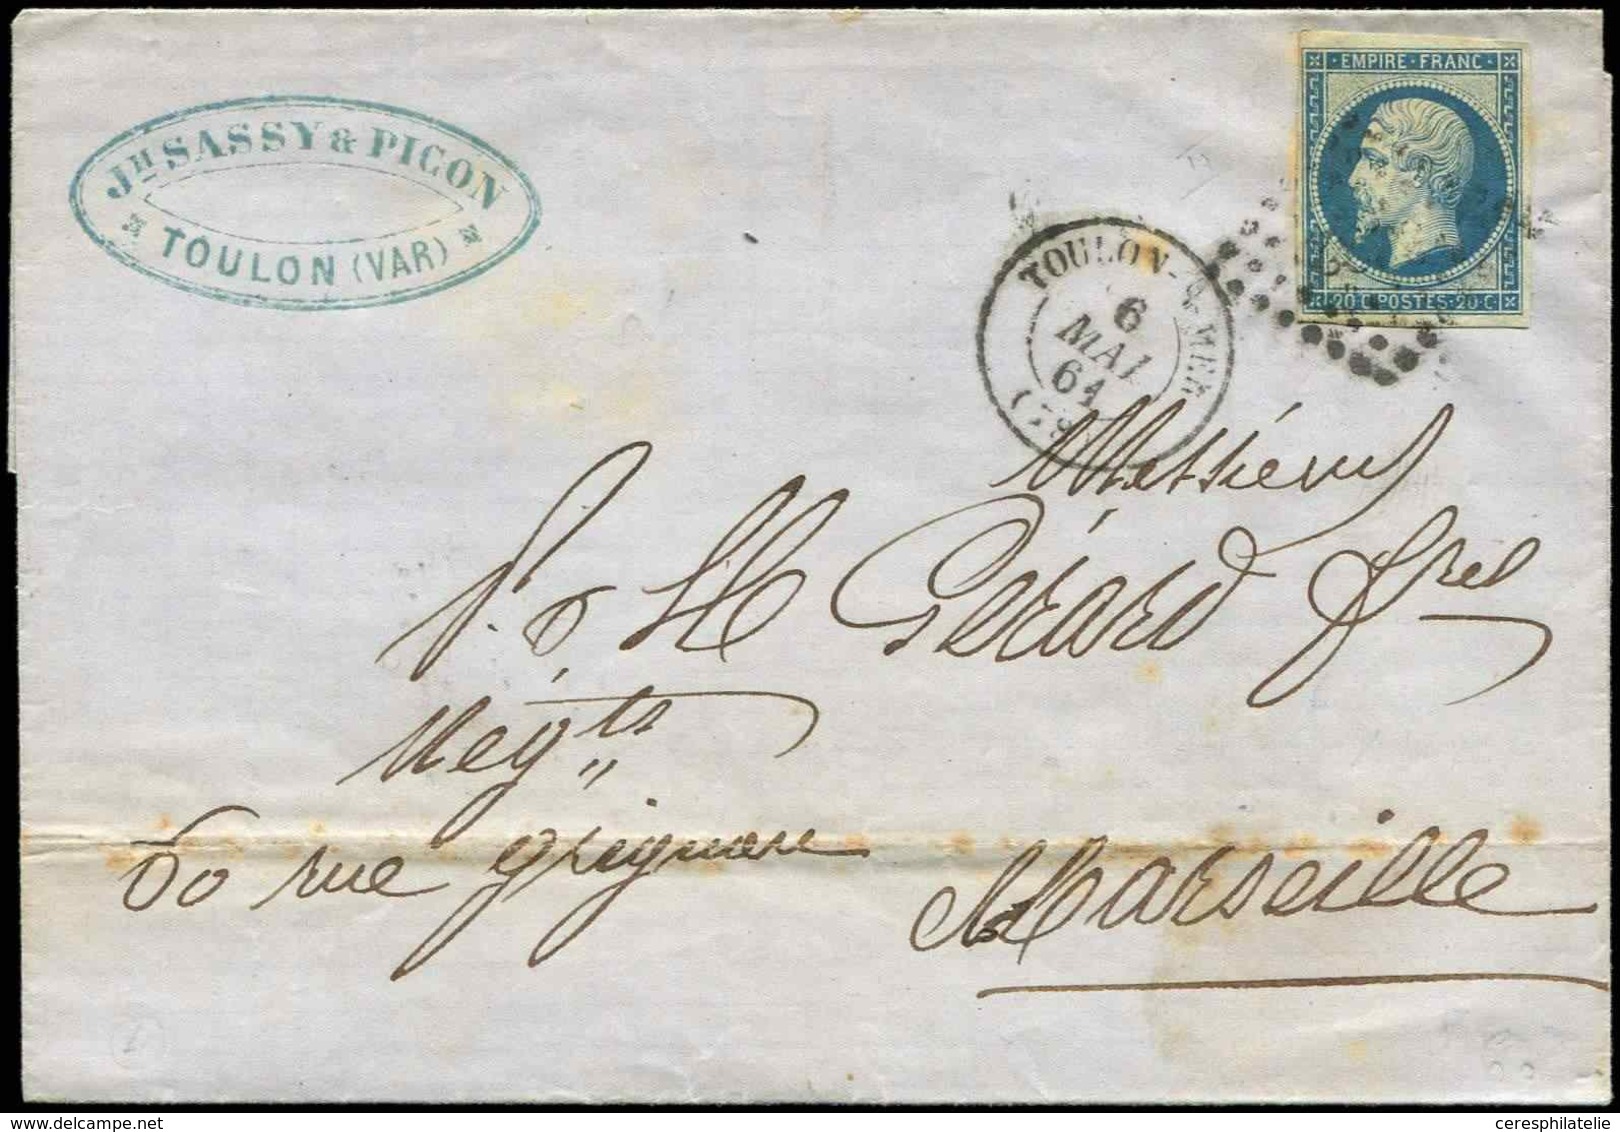 Jh SASSY & PICON
TOULON (VAR)
EMPIRE · FRANC ·
20·C·POSTES·20·C·
TOULON-S-MER
6
MAI
61
Messieurs
P. & H Gérard frères
Negts
60 rue grignan
Marseille
ceresphilatelie